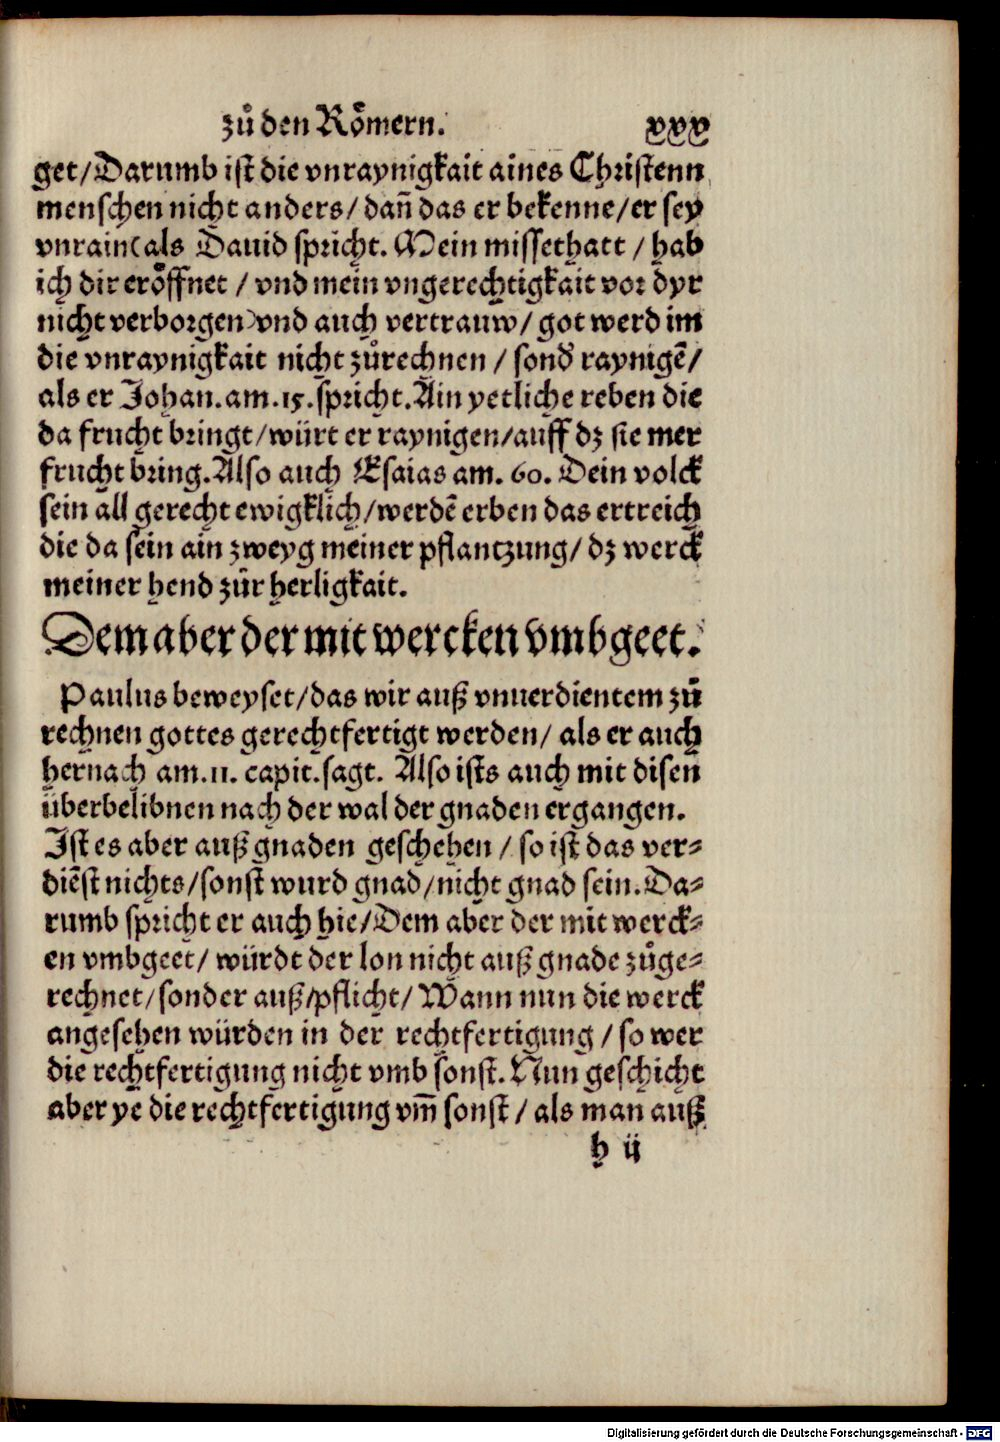 zů den Roͤmern. xxx
get/Darumb ist die vnraynigkait aines Christenn
menschen nicht anders/ dañ das er bekenne/er sey
vnrain(als Dauid spricht. Mein missethatt / hab
ich dir eroͤffnet / vnd mein vngerechtigkait vor dyr
nicht verborgen)vnd auch vertrauw/ got werd im
die vnraynigkait nicht zůrechnen / sond' raynigē/
als er Johan.am.15.spricht.Ain yetliche reben die
da frucht bringt/würt er raynigen/auff dz sie mer
frucht bring.Also auch Esaias am. 60. Dein volck
sein all gerecht ewigklich/werdē erben das ertreich
die da sein ain zweyg meiner pflantzung/ dz werck
meiner hend zůr herligkait.
Dem aber der mit wercken vmbgeet.
Paulus beweyset/das wir auß vnuerdientem zů
rechnen gottes gerechtfertigt werden/ als er auch
hernach am.11. capit.sagt. Also ists auch mit disen
überbelibnen nach der wal der gnaden ergangen.
Ist es aber auß gnaden geschehen / so ist das ver⸗
diēst nichts/sonst wurd gnad/nicht gnad sein.Da⸗
rumb spricht er auch hie/Dem aber der mit werck⸗
en vmbgeet/ würdt der lon nicht auß gnade zůge⸗
rechnet/sonder auß/pflicht/ Wann nun die werck
angesehen würden in der rechtfertigung / so wer
die rechtfertigung nicht vmb sonst. Nun geschicht
aber ye die rechtfertigung vm̄ sonst / als man auß
h ij
Digitalisierung gefördert durch die Deutsche Forschungsgemeinschaft - DFG